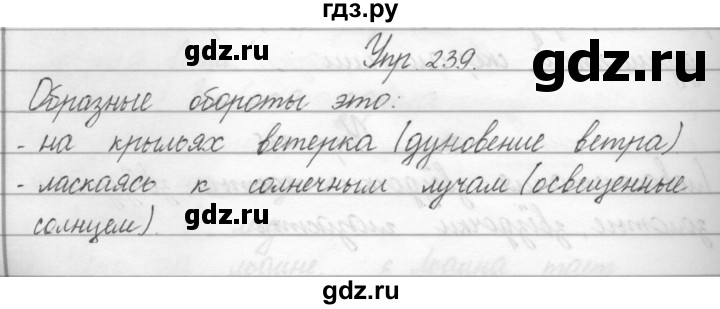 гдз.ру
gdz.ru
gdz.ru
Упр. 239.
Образные обороты это:
- на крыльях ветерка (дуновение ветра)
- ласкаясь к солнечным лучам (освещенные
gdz.ru
солнцем).
gdz.ru